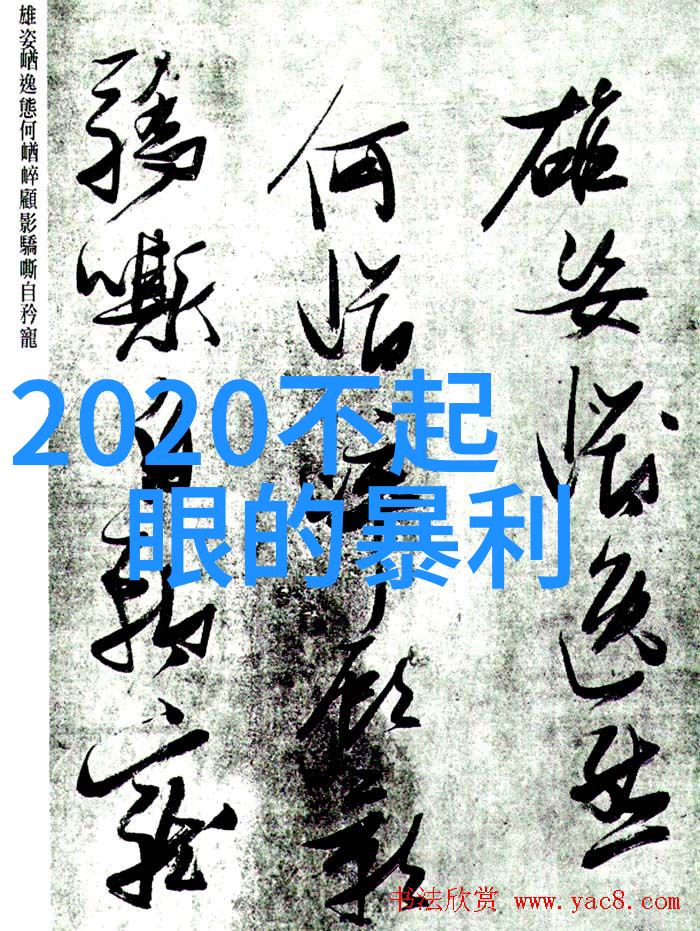 雄姿崷逸態何崷崪顧影驕嘶自矜寵
雄姿逸態
何顧影
驕嘶自矜寵
2020不起
眼的暴利
书法欣赏 www.yac8.com